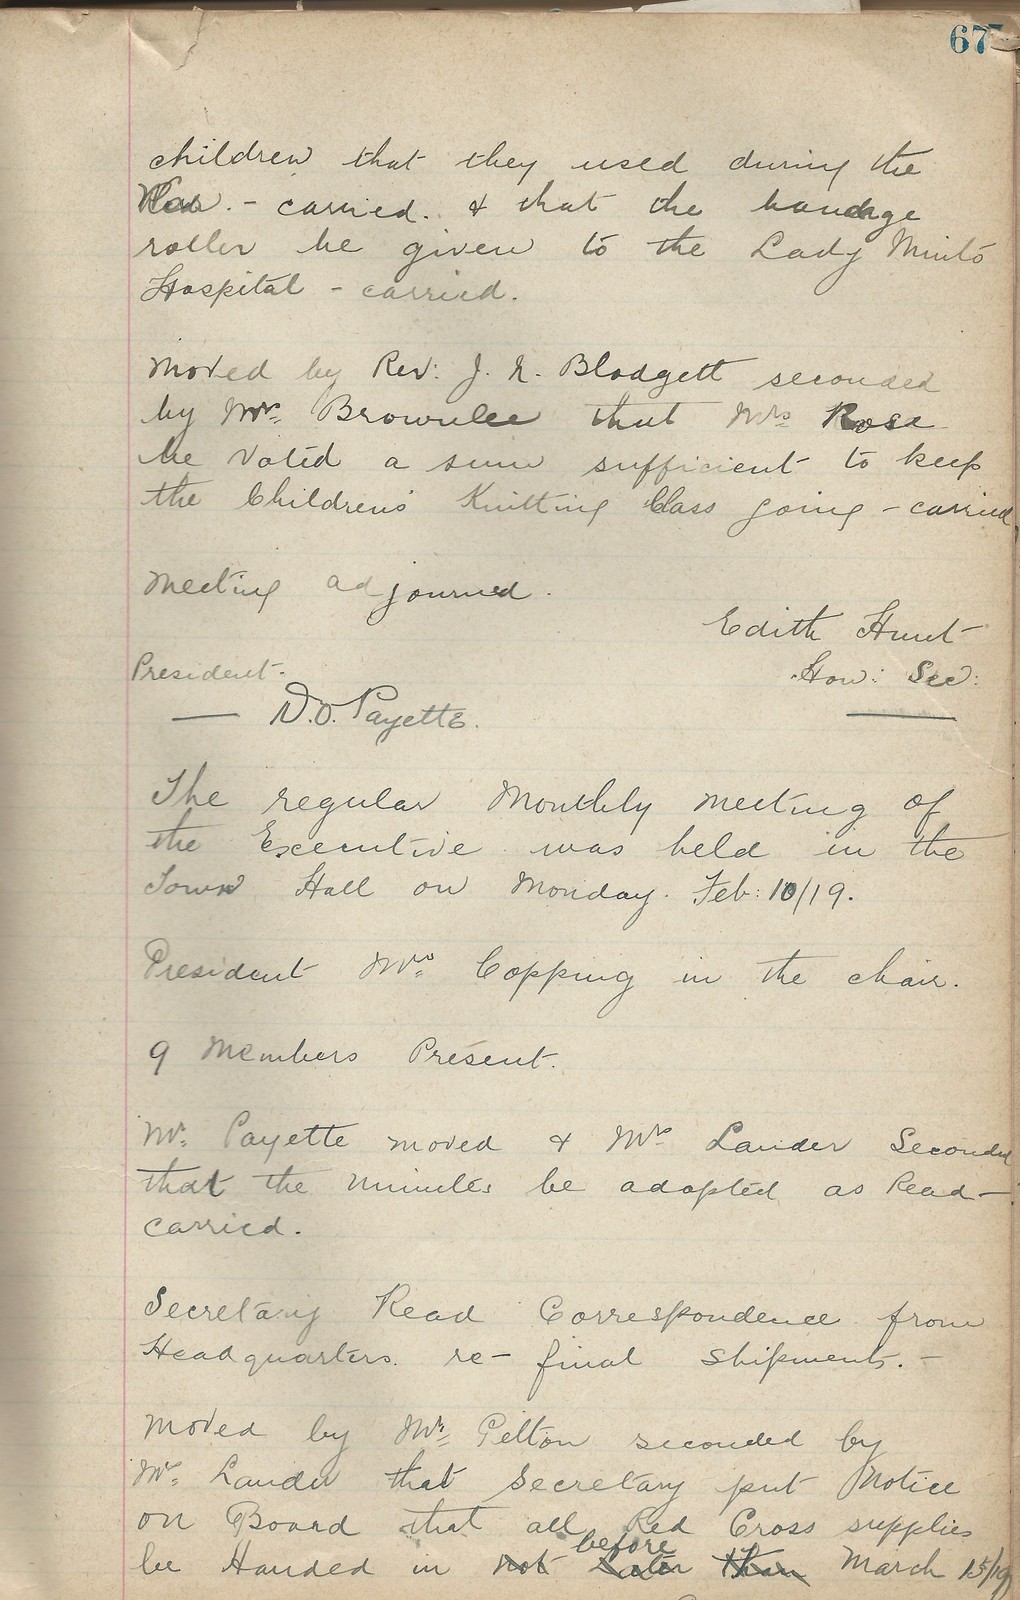 67
children that they used during the
War. - carried. & that the bandage
roller be given to the Lady Minto
Hospital - carried.
Moved by Rev: J. N. Blodgett seconded
by Mrs. Brownlee that Mrs Rose
be voted a sum sufficient to keep
the Children's Knitting Class going - carried
Meeting adjourned.
Edith Hunt
Hon: Sec:
President.
— D.O. Payette.
The regular Monthly Meeting of
the Executive was held in the
Town Hall on Monday. Feb: 10/19.
President Mrs. Copping in the chair.
9 Members Present.
Mr. Payette moved & Mrs Lander Seconded
that the minutes be adopted as Read—
carried.
Secretary Read Correspondence from
Headquarters. re- final Shipments. -
Moved by Mrs. Pelton seconded by
Mrs. Lander that Secretary put Notice
on Board that all Red Cross supplies
be Handed in not later than before March 15/19